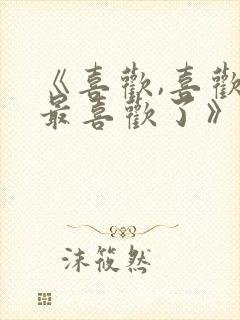 《喜歡,喜歡
最喜歡了》
沫筱然